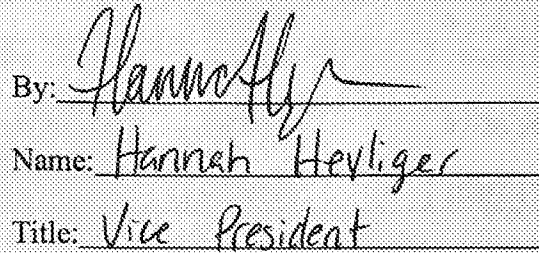 By:
Name: Hannah Heyliger
Title: Vice President